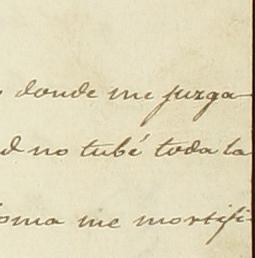 donde me juzga
no tubé toda la
me mortifi-